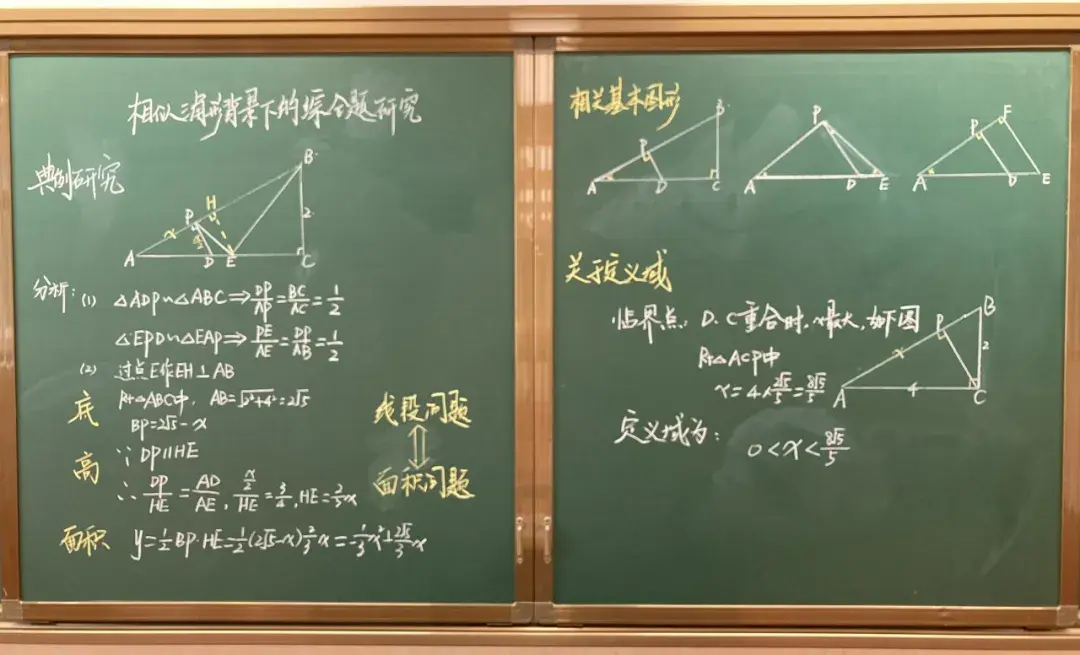 相似三角形背景下的综合题研究
典例研究
B
H
P
x
2
A
D
E
C
分析:(1) △ADP∽△ABC⇒DP/AP=BC/AC=1/2
△EPD∽△EAP⇒PE/AE=DP/AB=1/2
(2) 过点E作EH⊥AB
底
Rt△ABC中, AB=√2²+4²=2√5
BP=2√5-x
高
∵DP∥HE
∴DP/HE=AD/AE, x/2/HE=3/4, HE=2/3x
面积 y=1/2BP·HE=1/2(2√5-x)2/3x=-1/3x²+2√5/3x
线段问题
⇕
面积问题
相关基本图形
A P B D C
A P D E
A P F D E
关于定义域
临界点: D、C重合时, x最大, 如下图
Rt△ACP中
x=4×2√5/5=8√5/5
B
P
x
2
A
4
C
定义域为:
0<x<8√5/5